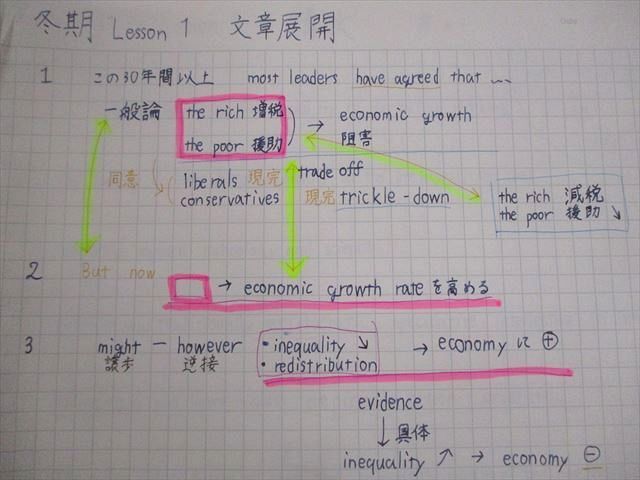 冬期 Lesson 1 文章展開
1 この30年間以上 most leaders have agreed that ...
一般論 the rich 増税 → economic growth
the poor 援助 阻害
同意 liberals 現完 trade off
conservatives 現完 trickle-down
the rich 減税
the poor 援助 ↘
2 But now
→ economic growth rateを高める
3 might - however ・inequality ↘ → economy に ⊕
譲歩 逆接 ・redistribution
evidence
↓ 具体
inequality ↗ → economy ⊖